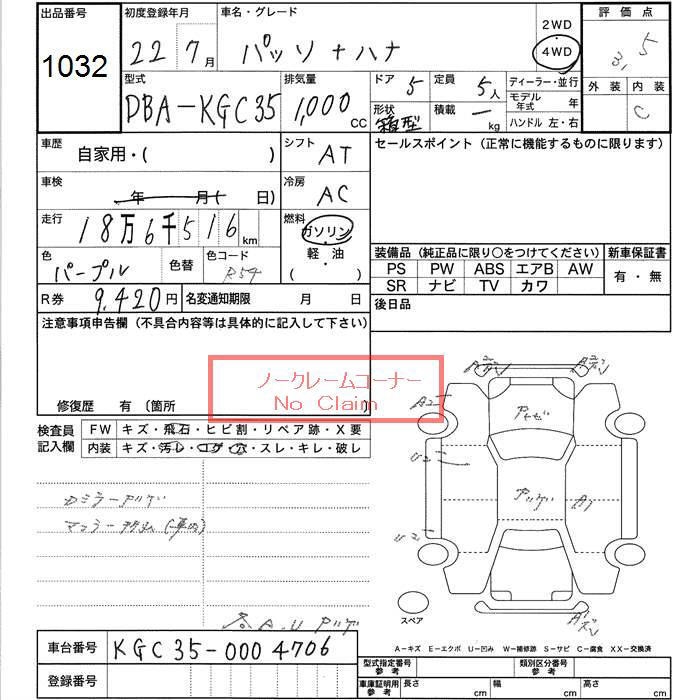 出品番号
1032
初度登録年月
22 7月
車名・グレード
パッソ + ハナ
2WD
4WD
評価点
3.5
外装 内装
C
型式
DBA-KGC35
排気量
1,000 CC
ドア 5
定員 5人
ディーラー・並行
モデル年式 年
ハンドル 左・右
形状
箱型
積載 — kg
車歴
自家用・( )
シフト AT
車検
年 月( 日)
冷房 AC
走行
18万6千516 km
燃料
ガソリン
軽・油
( )
色
パープル
色替
色コード
R54
R券 9,420円
名変通知期限 月 日
セールスポイント (正常に機能するものに限ります)
装備品 (純正品に限り○をつけてください)
新車保証書
PS PW ABS エアB AW
SR ナビ TV カワ
有・無
後日品
注意事項申告欄 (不具合内容等は具体的に記入して下さい)
ノークレームコーナー
No Claim
修復歴 有 〔箇所
検査員記入欄
FW キズ・飛石・ヒビ割・リペア跡・X要
内装 キズ・汚レ・コゲ・穴・スレ・キレ・破レ
スペア
A-キズ E-エクボ U-凹み W-補修跡 S-サビ C-腐食 XX-交換済
車台番号 KGC35-0004706
登録番号
型式指定番号 参考
類別区分番号 参考
車庫証明用 参考
長さ cm
幅 cm
高さ cm